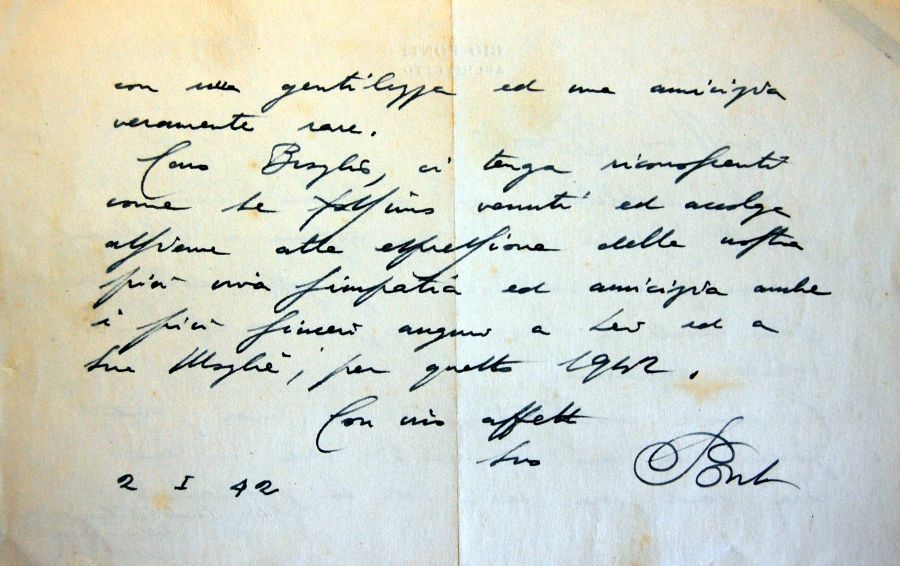 GIO PONTI
ARCHITETTO
con una gentilezza ed una amicizia
veramente rare.
Caro ci tenga riconoscenti
come se fossimo venuti ed accolga
assieme alla espressione della nostra
più viva simpatia ed amicizia anche
i più sinceri auguri a Lei ed a
Sua Moglie, per questo 1942.
Con vivo affetto
Suo Ponti
2 I 42